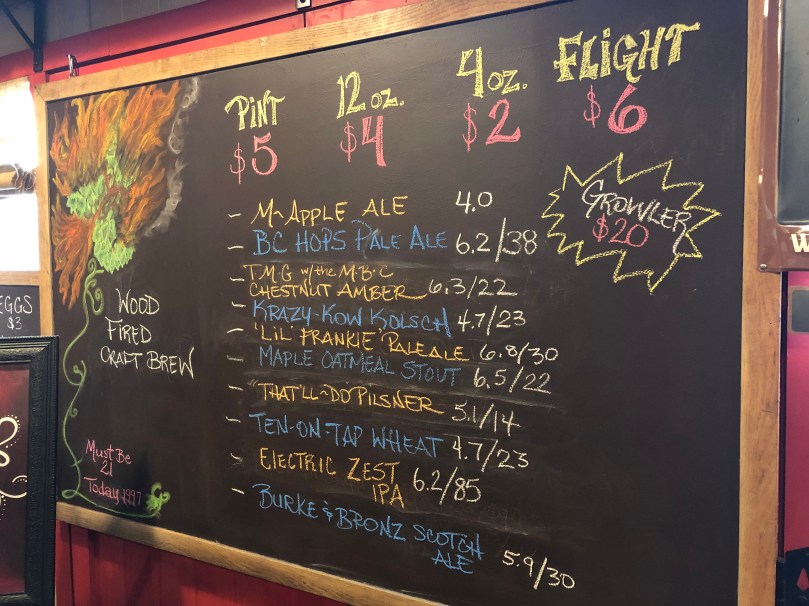 PINT 12 oz. 4 oz. FLIGHT
$5 $4 $2 $6
GROWLER
$20
– M~APPLE ALE 4.0
– BC HOPS PALE ALE 6.2/38
– T.M.G w/the M.B.C
CHESTNUT AMBER 6.3/22
– KRAZY-KOW KOLSCH 4.7/23
– 'LIL' FRANKIE' PALE ALE 6.8/30
– MAPLE OATMEAL STOUT 6.5/22
– "THAT'LL~DO" PILSNER 5.1/14
– TEN-ON-TAP WHEAT 4.7/23
– ELECTRIC ZEST
IPA 6.2/85
– BURKE & BRONZ SCOTCH
ALE 5.9/30
WOOD
FIRED
CRAFT BREW
MUST BE
21
TODAY 1997
EGGS
$3
W